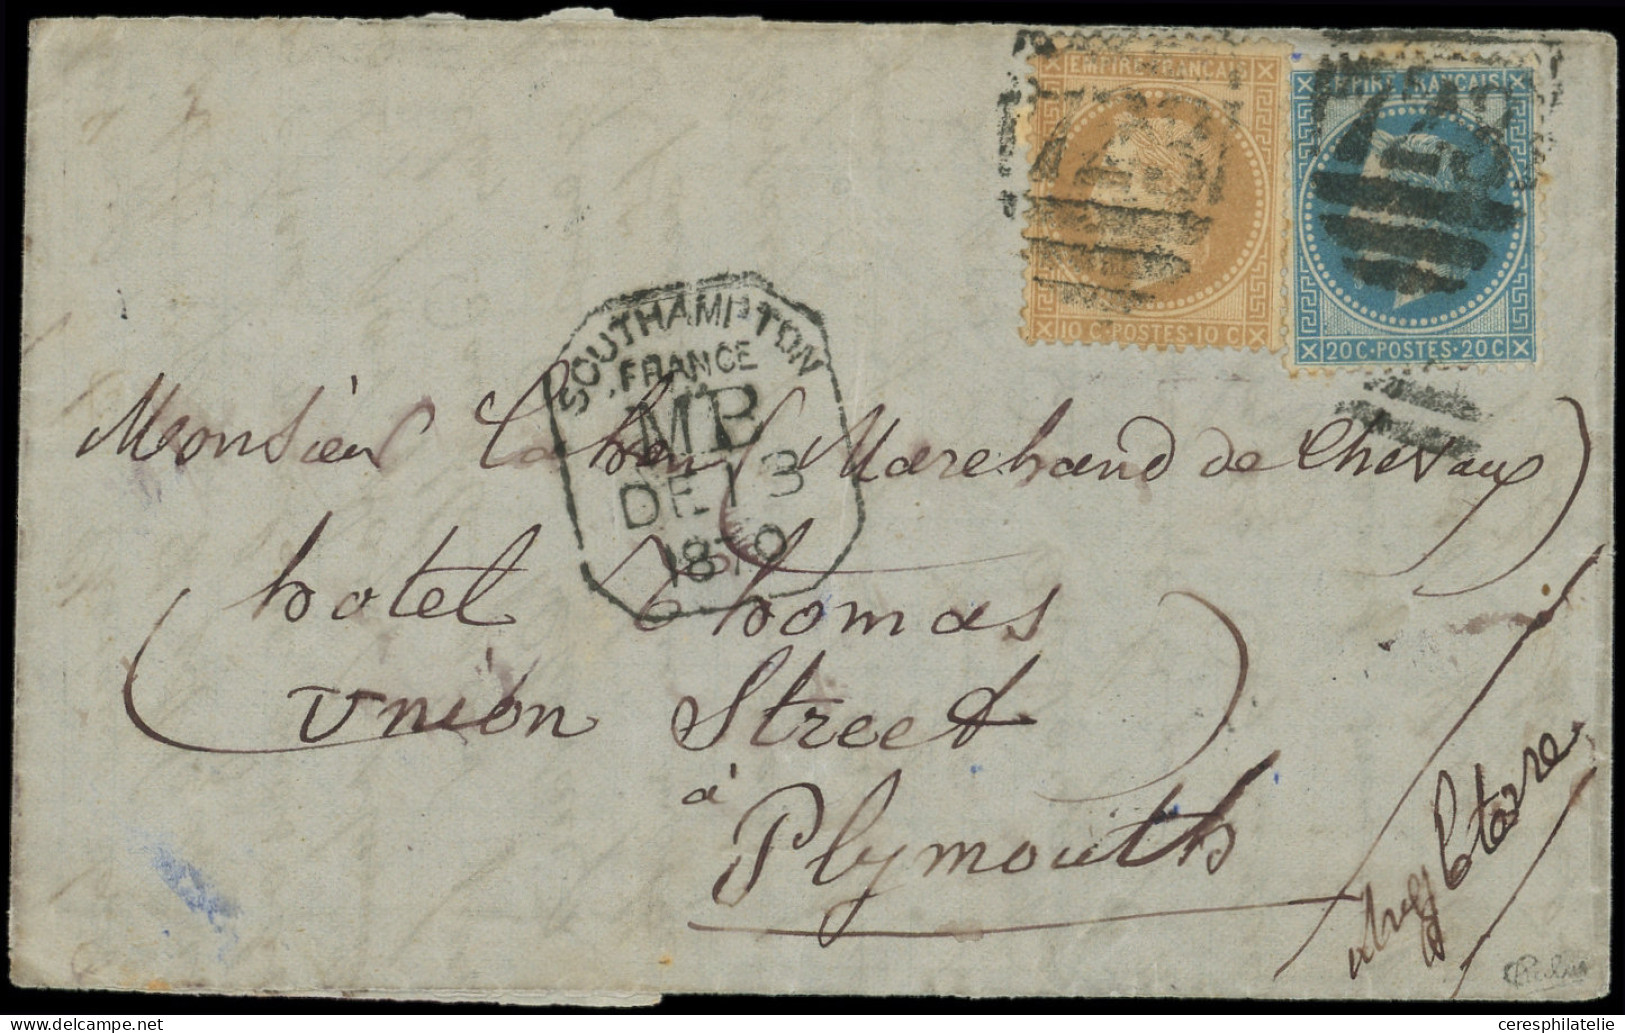 EMPIRE FRANÇAIS
723
10 C·POSTES·10 C
EMPIRE FRANÇAIS
723
20 C·POSTES·20 C
SOUTHAMPTON
FRANCE
MB
DE 13
1870
Monsieur Marchand de Chevaux
hotel Thomas
Union Street
à
Plymouth
ceresphilatelie